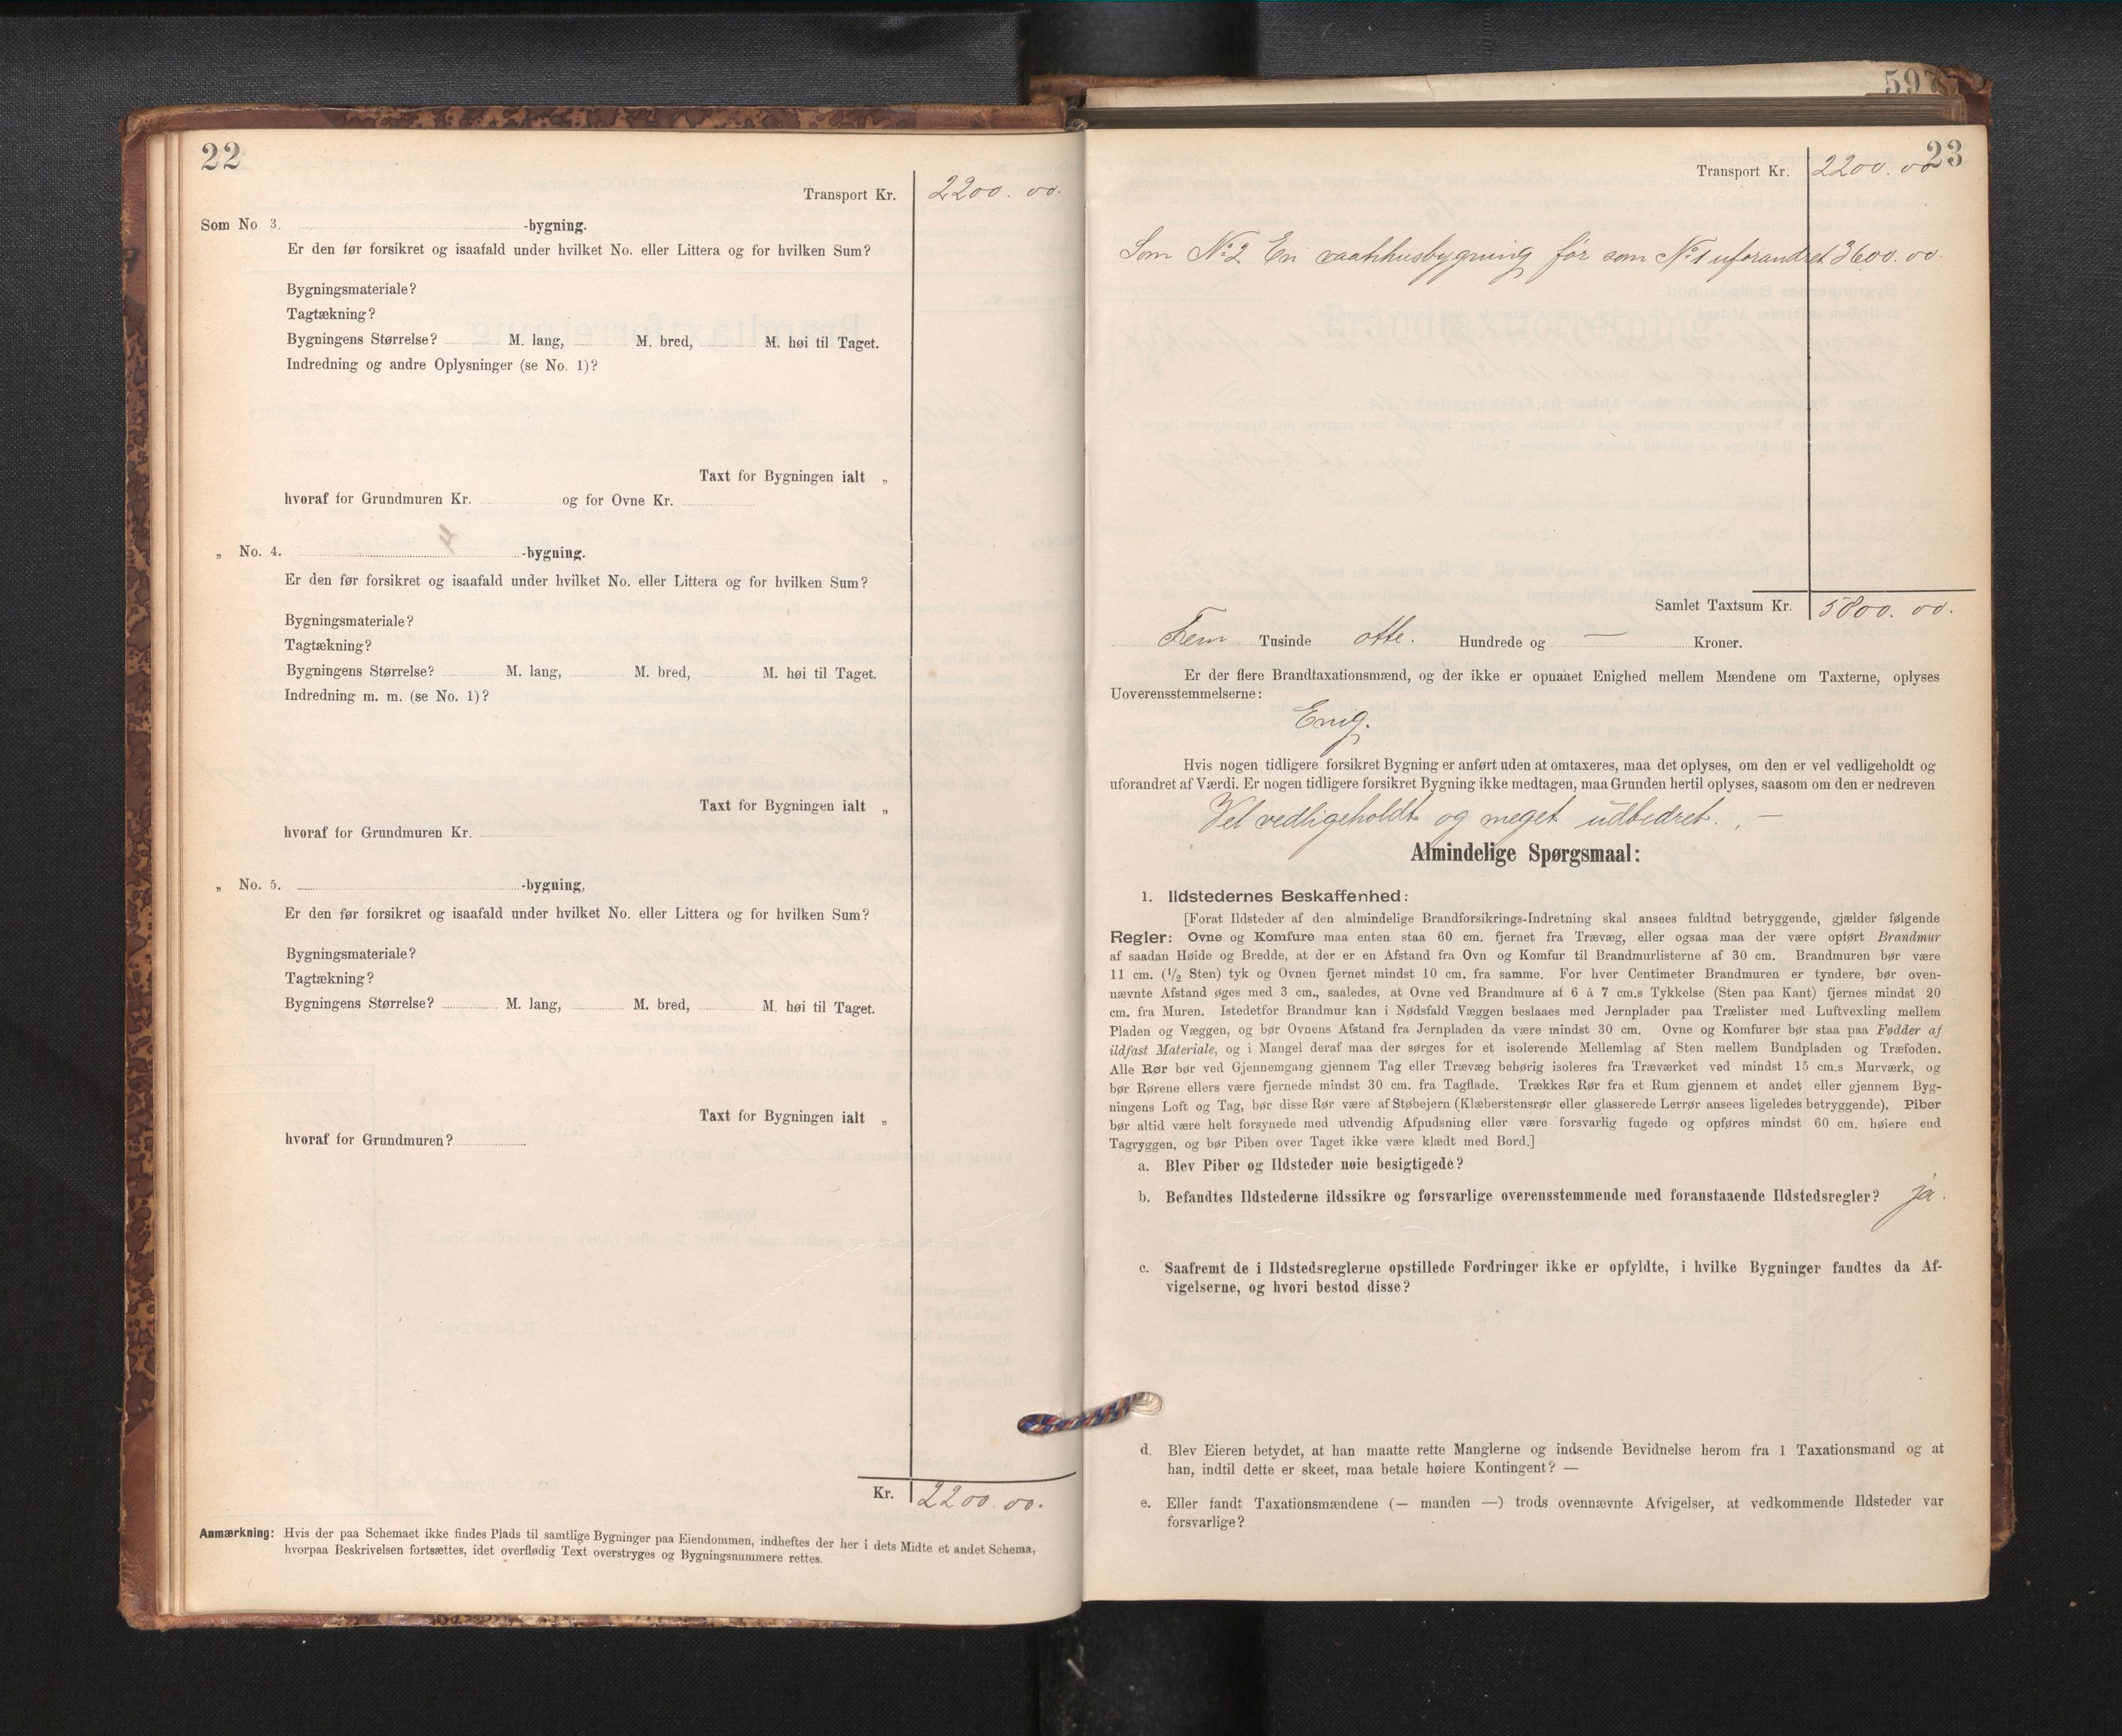 22
Transport Kr. 2200.00.
Som No 3. -bygning.
Er den før forsikret og isaafald under hvilket No. eller Littera og for hvilken Sum?
Bygningsmateriale?
Tagtækning?
Bygningens Størrelse? M. lang, M. bred, M. høi til Taget.
Indredning og andre Oplysninger (se No. 1)?
Taxt for Bygningen ialt „
hvoraf for Grundmuren Kr. og for Ovne Kr.
„ No. 4. -bygning.
Er den før forsikret og isaafald under hvilket No. eller Littera og for hvilken Sum?
Bygningsmateriale?
Tagtækning?
Bygningens Størrelse? M. lang, M. bred, M. høi til Taget.
Indredning m. m. (se No. 1)?
Taxt for Bygningen ialt „
hvoraf for Grundmuren Kr.
„ No. 5. -bygning,
Er den før forsikret og isaafald under hvilket No. eller Littera og for hvilken Sum?
Bygningsmateriale?
Tagtækning?
Bygningens Størrelse? M. lang, M. bred, M. høi til Taget.
Taxt for Bygningen ialt „
hvoraf for Grundmuren?
Kr. 2200.00.
Anmærkning: Hvis der paa Schemaet ikke findes Plads til samtlige Bygninger paa Eiendommen, indheftes der her i dets Midte et andet Schema,
hvorpaa Beskrivelsen fortsættes, idet overflødig Text overstryges og Bygningsnummere rettes.
597
23
Transport Kr. 2200.00
Som No 2 En vaanhusbygning før som No 1 uforandret 3600.00.
Samlet Taxtsum Kr. 5800.00.
Fem Tusinde otte. Hundrede og — Kroner.
Er der flere Brandtaxationsmænd, og der ikke er opnaaet Enighed mellem Mændene om Taxterne, oplyses
Uoverensstemmelserne:
Enig.
Hvis nogen tidligere forsikret Bygning er anført uden at omtaxeres, maa det oplyses, om den er vel vedligeholdt og
uforandret af Værdi. Er nogen tidligere forsikret Bygning ikke medtagen, maa Grunden hertil oplyses, saasom om den er nedreven
Vel vedligeholdt og meget udbedret. —
Almindelige Spørgsmaal:
1. Ildstedernes Beskaffenhed:
[Forat Ildsteder af den almindelige Brandforsikrings-Indretning skal ansees fuldtud betryggende, gjælder følgende
Regler: Ovne og Komfure maa enten staa 60 cm. fjernet fra Trævæg, eller ogsaa maa der være opført Brandmur
af saadan Høide og Bredde, at der er en Afstand fra Ovn og Komfur til Brandmurlisterne af 30 cm. Brandmuren bør være
11 cm. (1/2 Sten) tyk og Ovnen fjernet mindst 10 cm. fra samme. For hver Centimeter Brandmuren er tyndere, bør oven-
nævnte Afstand øges med 3 cm., saaledes, at Ovne ved Brandmure af 6 à 7 cm.s Tykkelse (Sten paa Kant) fjernes mindst 20
cm. fra Muren. Istedetfor Brandmur kan i Nødsfald Væggen beslaaes med Jernplader paa Trælister med Luftvexling mellem
Pladen og Væggen, og bør Ovnens Afstand fra Jernpladen da være mindst 30 cm. Ovne og Komfurer bør staa paa Fødder af
ildfast Materiale, og i Mangel deraf maa der sørges for et isolerende Mellemlag af Sten mellem Bundpladen og Træfoden.
Alle Rør bør ved Gjennemgang gjennem Tag eller Trævæg behørig isoleres fra Træværket ved mindst 15 cm.s Murværk, og
bør Rørene ellers være fjernede mindst 30 cm. fra Tagflade. Trækkes Rør fra et Rum gjennem et andet eller gjennem Byg-
ningens Loft og Tag, bør disse Rør være af Støbejern (Klæberstensrør eller glasserede Lerrør ansees ligeledes betryggende). Piber
bør altid være helt forsynede med udvendig Afpudsning eller være forsvarlig fugede og opføres mindst 60 cm. høiere end
Tagryggen, og bør Piben over Taget ikke være klædt med Bord.]
a. Blev Piber og Ildsteder nøie besigtigede?
b. Befandtes Ildstederne ildssikre og forsvarlige overensstemmende med foranstaaende Ildstedsregler? ja.
c. Saafremt de i Ildstedsreglerne opstillede Fordringer ikke er opfyldte, i hvilke Bygninger fandtes da Af-
vigelserne, og hvori bestod disse?
d. Blev Eieren betydet, at han maatte rette Manglerne og indsende Bevidnelse herom fra 1 Taxationsmand og at
han, indtil dette er skeet, maa betale høiere Kontingent? —
e. Eller fandt Taxationsmændene (— manden —) trods ovennævnte Afvigelser, at vedkommende Ildsteder var
forsvarlige?